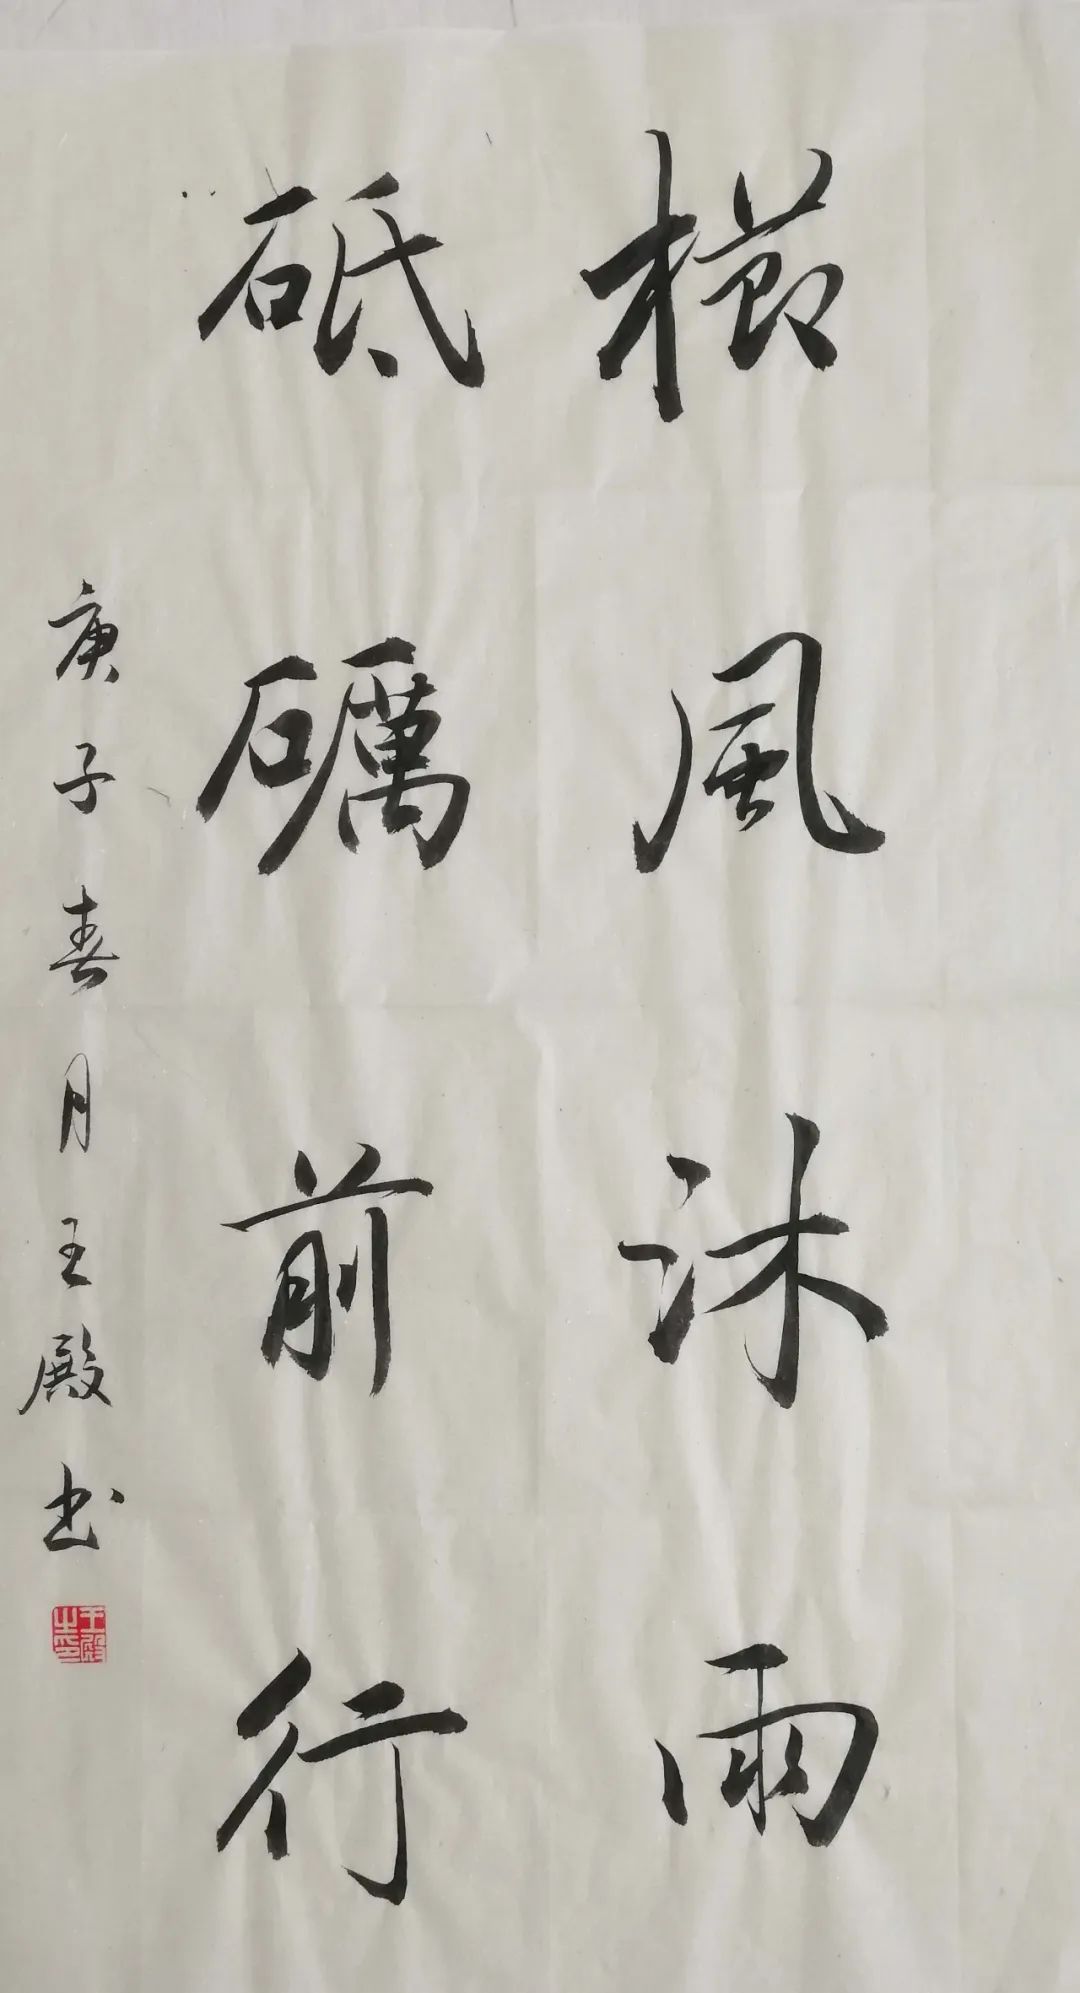 櫛風沐雨
砥礪前行
庚子春月王殿书
王殿之印